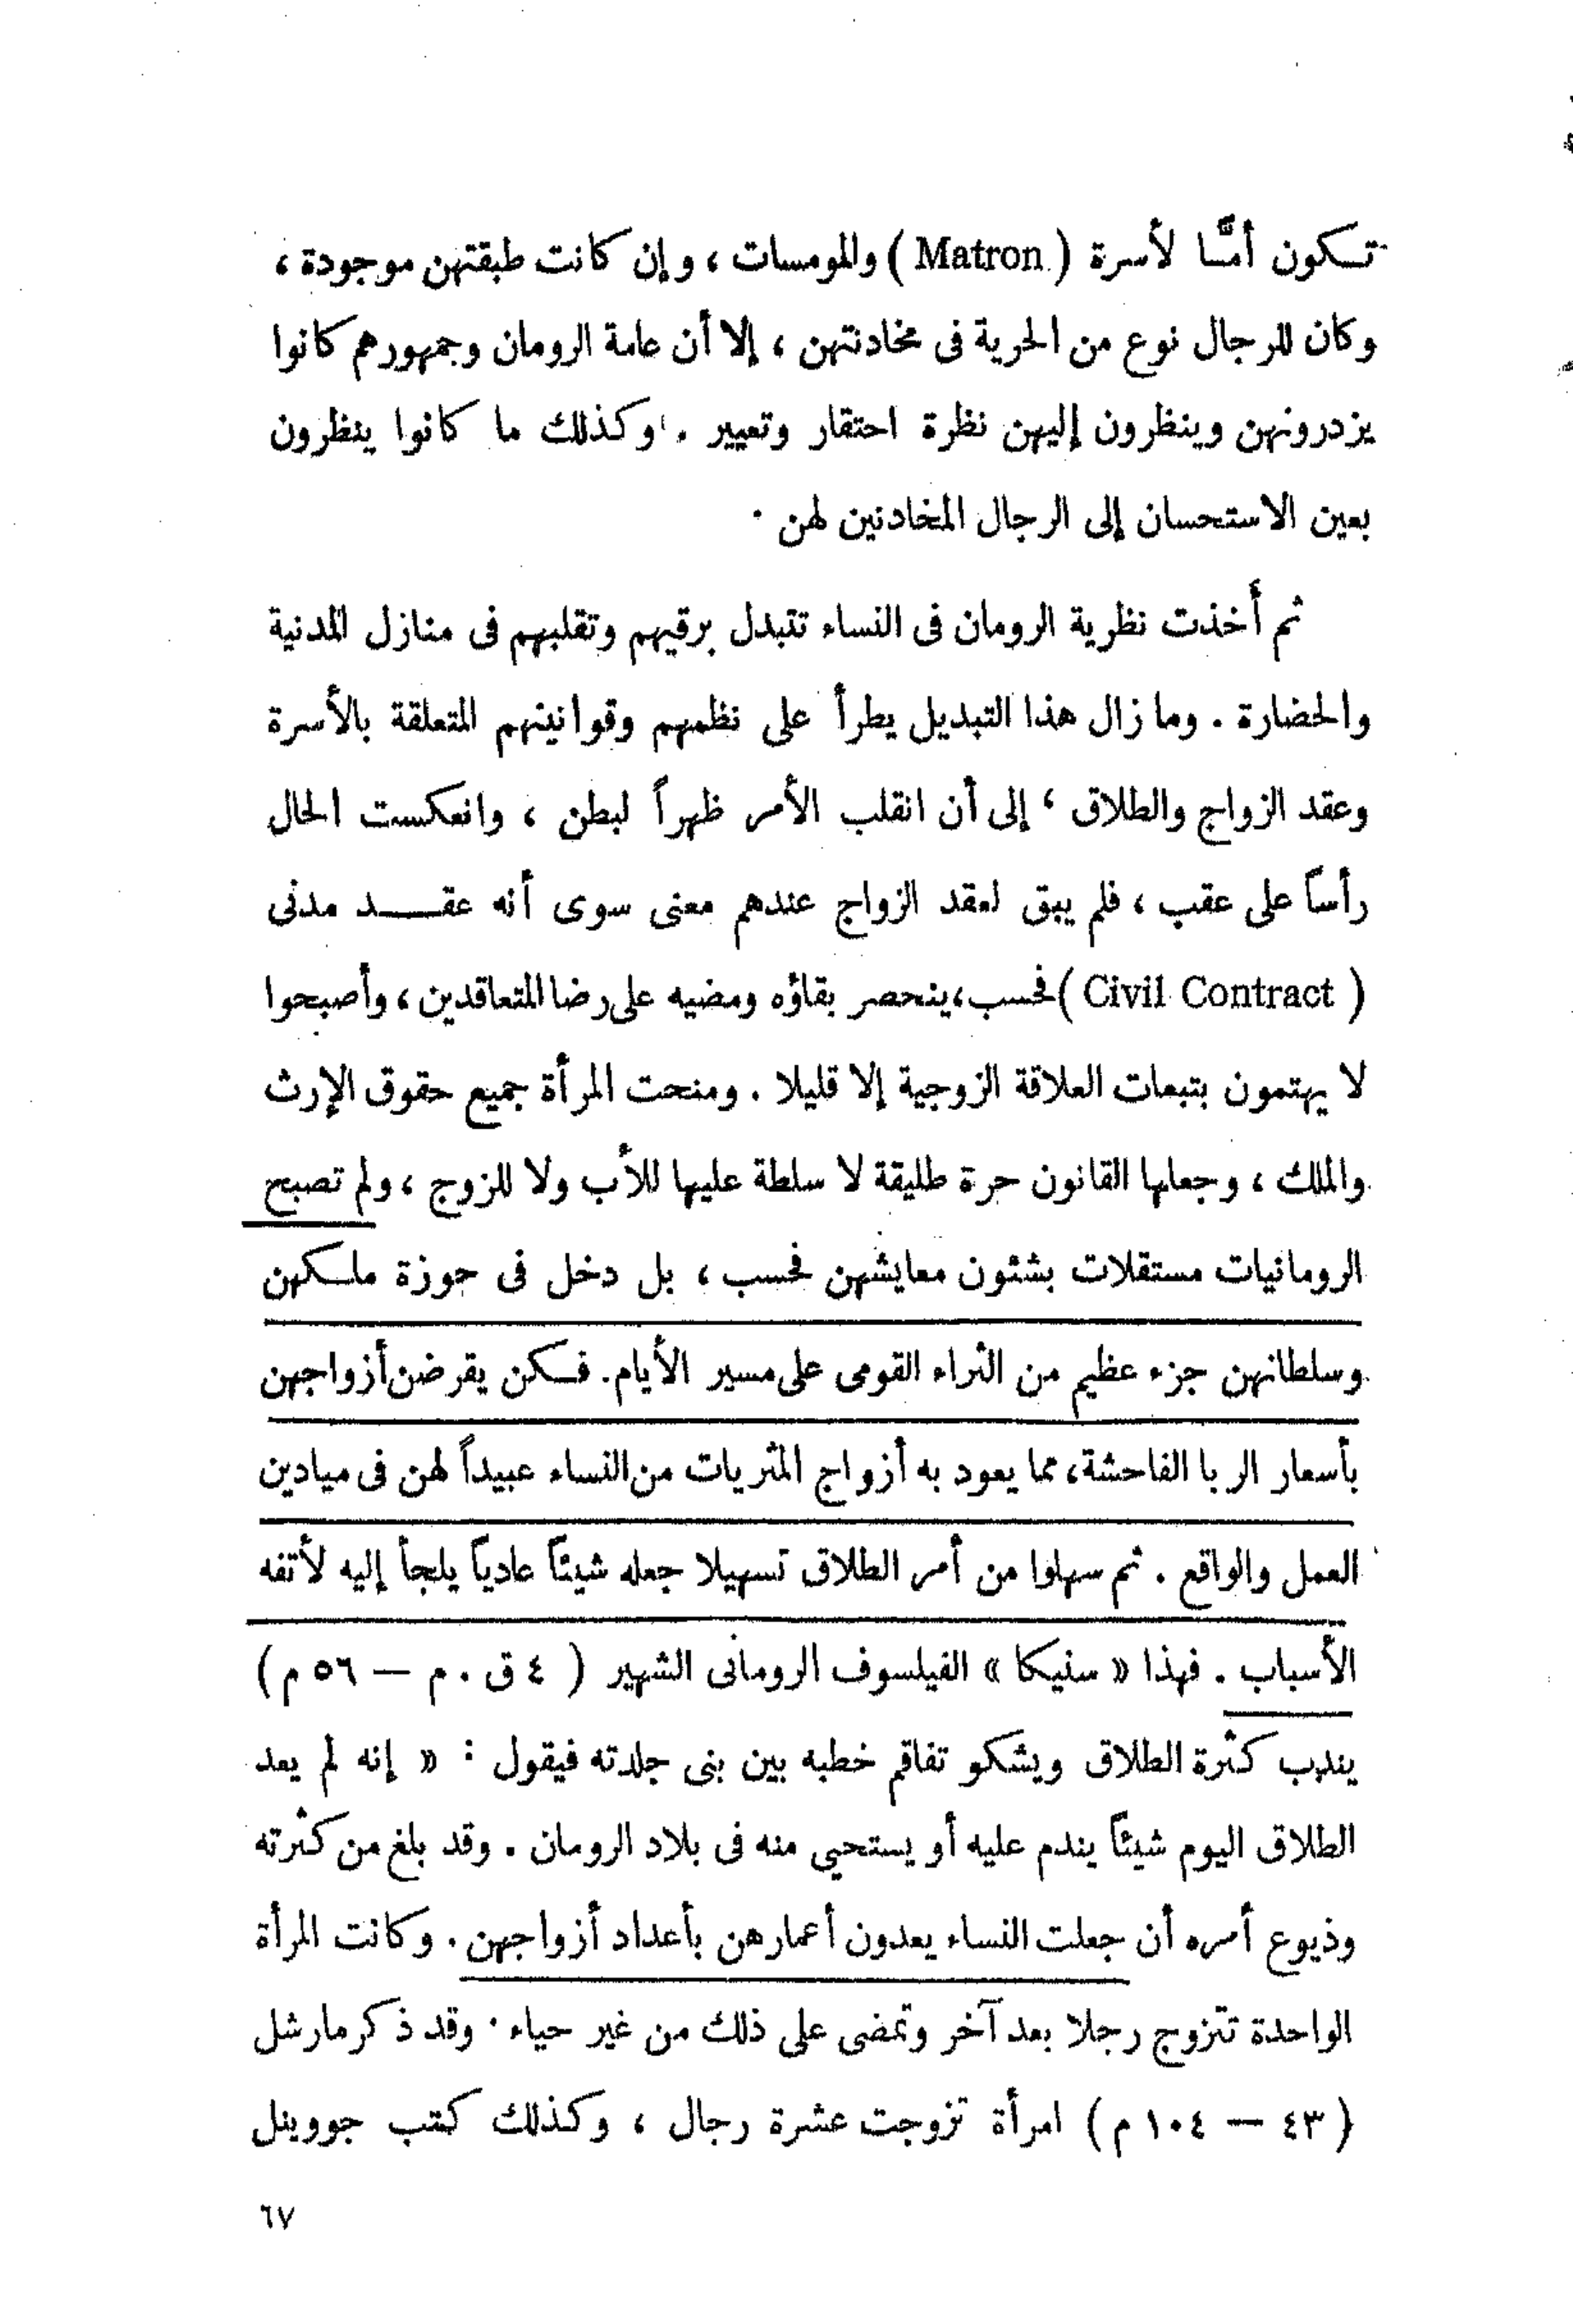 تكون أمًّا لأسرة ( Matron ) والمومسات ، وإن كانت طبقتهن موجودة ،
وكان للرجال نوع من الحرية فى مخادنتهن ، إلا أن عامة الرومان وجمهورهم كانوا
يزدرونهن وينظرون إليهن نظرة احتقار وتعيير . وكذلك ما كانوا ينظرون
بعين الاستحسان إلى الرجال المخادنين لهن .
ثم أخذت نظرية الرومان فى النساء تتبدل برقيهم وتقلبهم فى منازل المدنية
والحضارة . وما زال هذا التبديل يطرأ على نظمهم وقوانينهم المتعلقة بالأسرة
وعقد الزواج والطلاق ، إلى أن انقلب الأمر ظهراً لبطن ، وانعكست الحال
رأساً على عقب ، فلم يبق لعقد الزواج عندهم معنى سوى أنه عقد مدنى
( Civil Contract ) فحسب ، ينحصر بقاؤه ومضيه على رضا المتعاقدين ، وأصبحوا
لا يهتمون بتبعات العلاقة الزوجية إلا قليلا . ومنحت المرأة جميع حقوق الإرث
والملك ، وجعلها القانون حرة طليقة لا سلطة عليها للأب ولا للزوج ، ولم تصبح
الرومانيات مستقلات بشئون معايشهن فحسب ، بل دخل فى حوزة ملكهن
وسلطانهن جزء عظيم من الثراء القومى على مسير الأيام . فكن يقرضن أزواجهن
بأسعار الربا الفاحشة ، مما يعود به أزواج المثريات من النساء عبيداً لهن فى ميادين
العمل والواقع . ثم سهلوا من أمر الطلاق تسهيلا جعله شيئاً عادياً يلجأ إليه لأتفه
الأسباب . فهذا « سنيكا » الفيلسوف الرومانى الشهير ( ٤ ق . م — ٥٦ م )
يندب كثرة الطلاق ويشكو تفاقم خطبه بين بنى جلدته فيقول : « إنه لم يعد
الطلاق اليوم شيئاً يندم عليه أو يستحيى منه فى بلاد الرومان . وقد بلغ من كثرته
وذيوع أمره أن جعلت النساء يعدون أعمارهن بأعداد أزواجهن . وكانت المرأة
الواحدة تتزوج رجلا بعد آخر وتمضى على ذلك من غير حياء . وقد ذكر مارشل
( ٤٣ — ١٠٤ م ) امرأة تزوجت عشرة رجال ، وكذلك كتب جووينل
٦٧